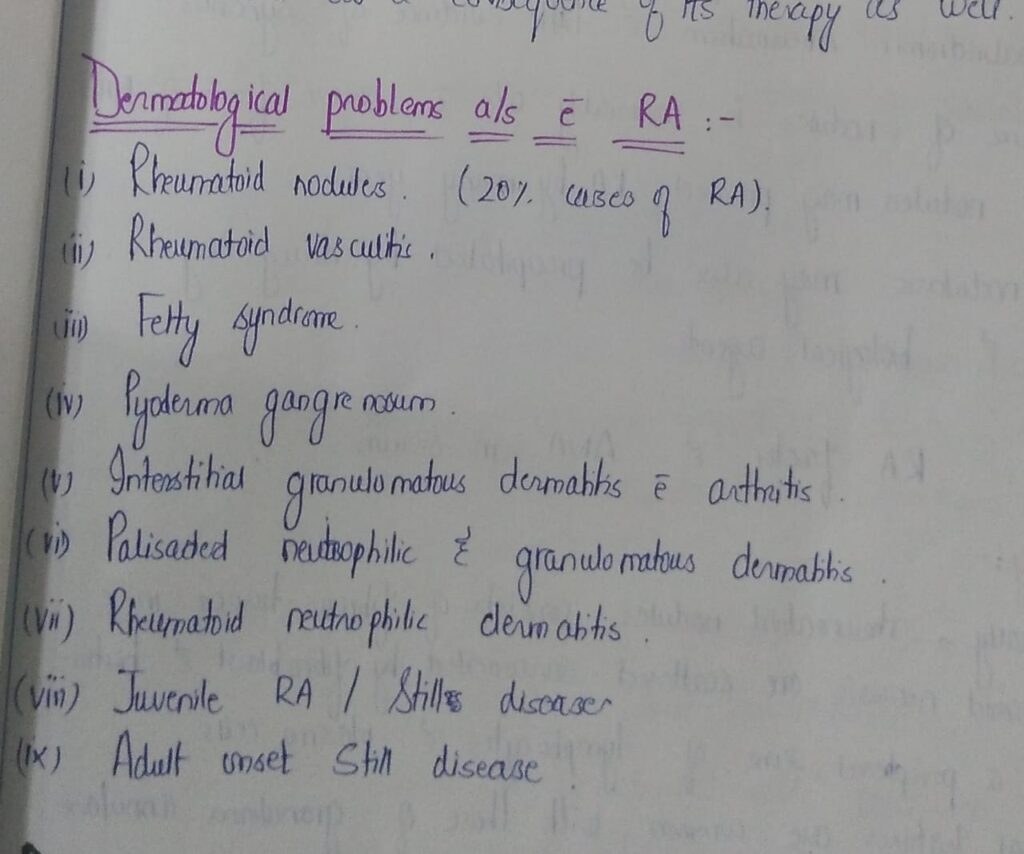 consequence of its therapy as well.
Dermatological problems a/s c̄ RA :-
(i) Rheumatoid nodules. (20% cases of RA).
(ii) Rheumatoid vasculitis.
(iii) Felty syndrome.
(iv) Pyoderma gangrenosum.
(v) Interstitial granulomatous dermatitis c̄ arthritis.
(vi) Palisaded neutrophilic & granulomatous dermatitis.
(vii) Rheumatoid neutrophilic dermatitis.
(viii) Juvenile RA / Still's disease
(ix) Adult onset Still disease